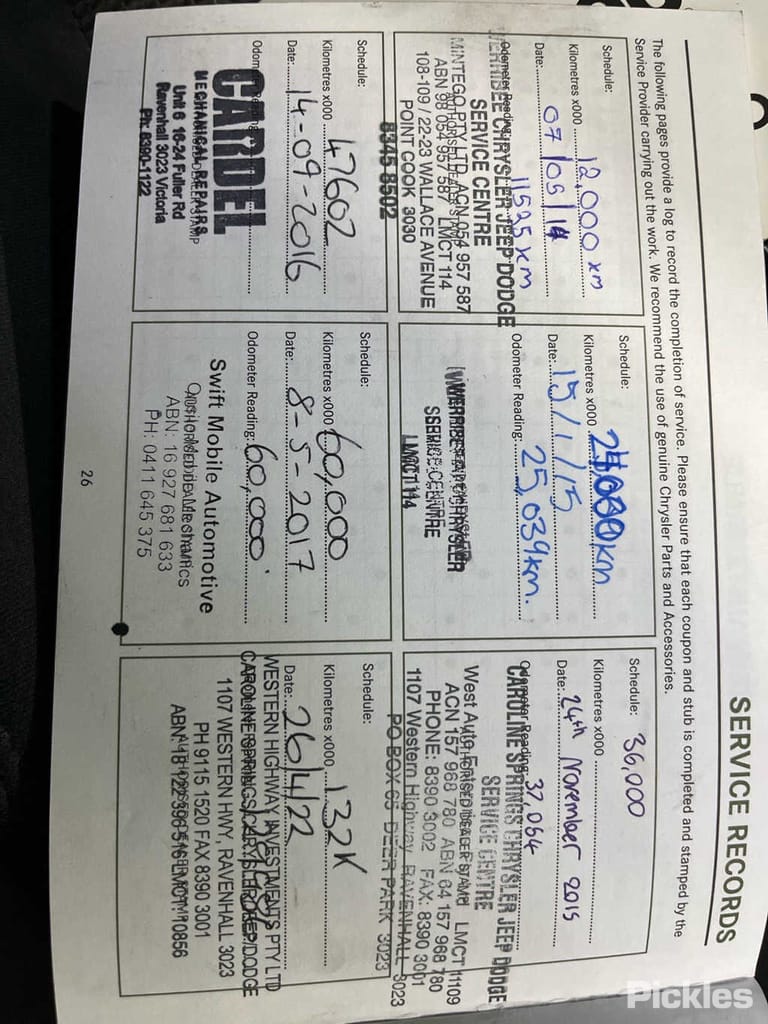 SERVICE RECORDS
The following pages provide a log to record the completion of service. Please ensure that each coupon and stub is completed and stamped by the
Service Provider carrying out the work. We recommend the use of genuine Chrysler Parts and Accessories.
Schedule:
Kilometres x000 12,000 km
Date: 07/05/14
Odometer Reading: 11525 km
WERRIBEE CHRYSLER JEEP DODGE
SERVICE CENTRE
MINTEGO PTY LTD ACN 054 957 587
ABN 98 054 957 587 LMCT 114
108-109 / 22-23 WALLACE AVENUE
POINT COOK 3030
8345 8502
Schedule:
Kilometres x000 km
Date: 15/1/15
Odometer Reading: 25,039km.
CHRYSLER
SERVICE CENTRE
LMCT 114
Schedule: 36,000
Kilometres x000
Date: 24th November 2015
Odometer Reading: 37064
CAROLINE SPRINGS CHRYSLER JEEP DODGE
SERVICE CENTRE
LMCT 11109
ACN 157 968 780 ABN 64 157 968 780
PHONE: 8390 3002 FAX: 8390 3001
1107 Western Highway, RAVENHALL 3023
PO BOX 65 DEER PARK 3023
Schedule:
Kilometres x000 47602
Date: 14-09-2016
CARDEL
MECHANICAL REPAIRS
Unit 6 16-24 Fuller Rd
Ravenhall 3023 Victoria
Ph: 8390-1122
Schedule:
Kilometres x000 60,000
Date: 8-5-2017
Odometer Reading: 60,000
Swift Mobile Automotive
ABN: 16 927 681 633
PH: 0411 645 375
Schedule:
Kilometres x000 132K
Date: 26/4/22
WESTERN HIGHWAY INVESTMENTS PTY LTD
CAROLINE SPRINGS DODGE
1107 WESTERN HWY, RAVENHALL 3023
PH 9115 1520 FAX 8390 3001
26
Pickles